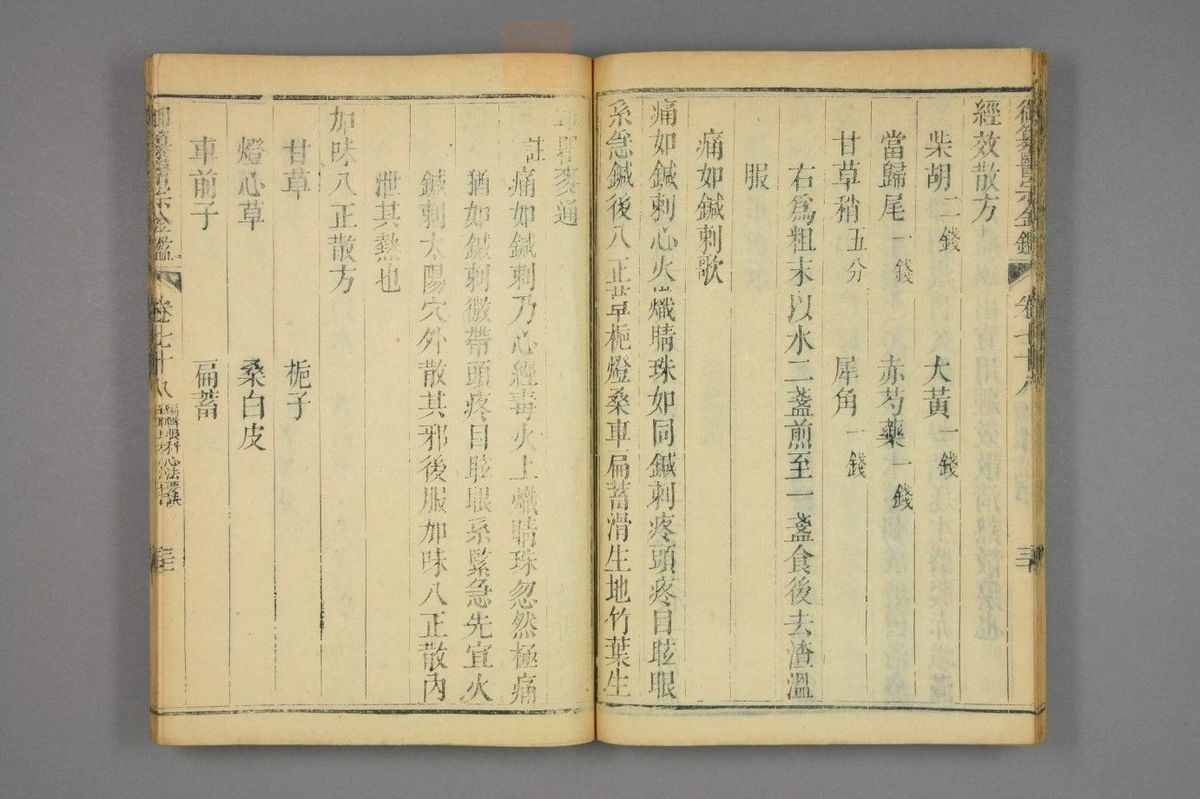 御纂醫宗金鑑 卷七十八
經效散方
柴胡二錢 大黃一錢
當歸尾一錢 赤芍藥一錢
甘草稍五分 犀角一錢
右爲粗末以水二盞煎至一盞食後去渣溫
服
痛如鍼刺歌
痛如鍼刺心火熾睛珠如同鍼刺疼頭疼目眩眼
系急鍼後八正草梔燈桑車萹蓄滑生地竹葉生
軍瞿麥通
註 痛如鍼刺乃心經毒火上熾睛珠忽然極痛
猶如鍼刺微帶頭疼目眩眼系緊急先宜火
鍼刺太陽穴外散其邪後服加味八正散內
泄其熱也
加味八正散方
甘草 梔子
燈心草 桑白皮
車前子 萹蓄
御纂醫宗金鑑 卷七十八 編輯眼科心法要訣